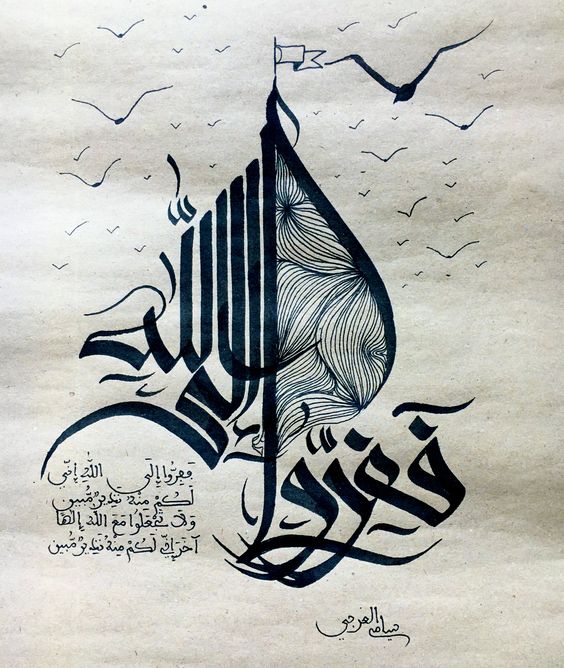 ففِرُّوا إلى اللّه
فَفِرُّوا إِلَى اللَّهِ إِنِّي
لَكُمْ مِنْهُ نَذِيرٌ مُّبِين
وَلَا تَجْعَلُوا مَعَ اللَّهِ إِلَهًا
آخَرَ إِنِّي لَكُمْ مِنْهُ نَذِيرٌ مُّبِين